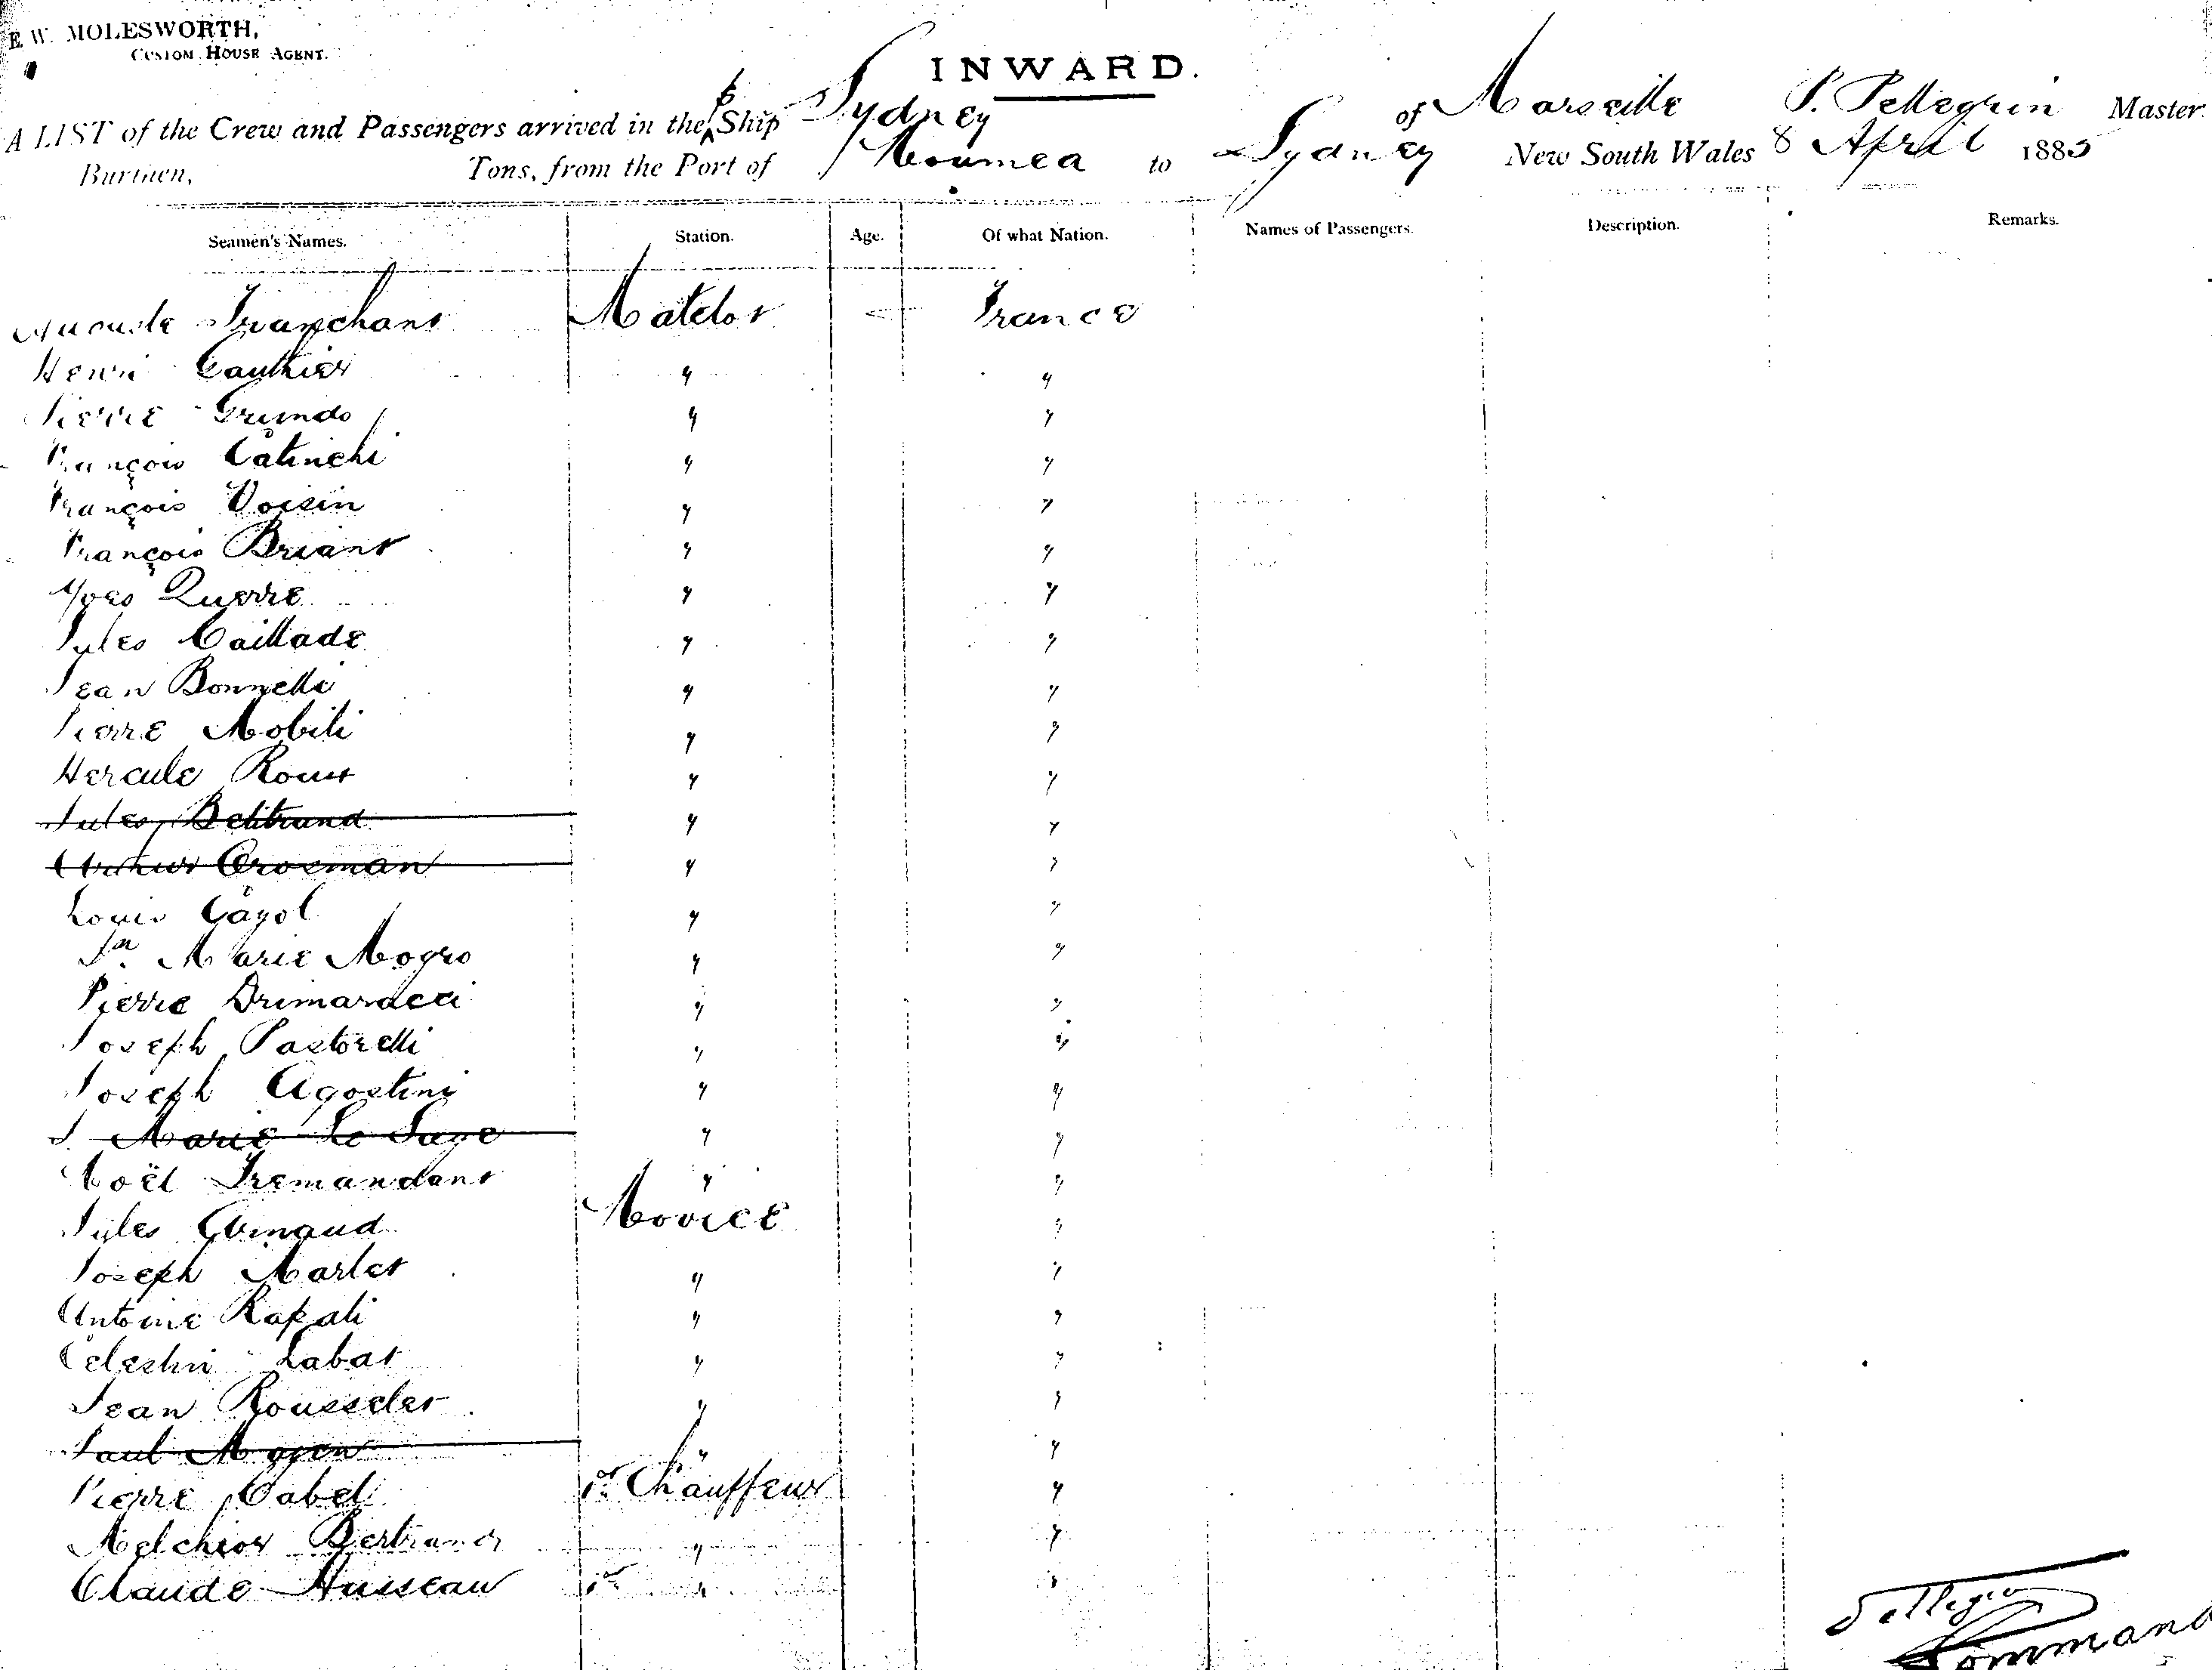 E. W. MOLESWORTH,
CUSTOM HOUSE AGENT.
INWARD.
A LIST of the Crew and Passengers arrived in the Ship Sydney of Marseille P. Pellegrin Master
Burthen, Tons, from the Port of Noumea to Sydney New South Wales 8 April 1885
Seamen's Names. Station. Age. Of what Nation. Names of Passengers. Description. Remarks.
Auguste Tranchant Matelot France
Henri Gauthier " "
Pierre "  "
François Catinchi " "
François Voisin " "
François Briant " "
Yves Querre " "
Jules Caillade " "
Jean Bonnelli " "
Pierre Nobili " "
Hercule Roux " "
Jules " "
Arthur Crosman " "
Louis Cayol " "
Jn Marie Mogro " "
Pierre " "
Joseph Pastorelli " "
Joseph Agostini " "
J. Marie Le " "
Noël Tremandant " "
Jules Novice "
Joseph Marlet " "
Antoine " "
Celestin Labat " "
Jean Rousselet " "
Paul " "
Pierre Cabel 1er Chauffeur "
Melchior Bertrand " "
Claude Husseau 1er " "
Pellegrin